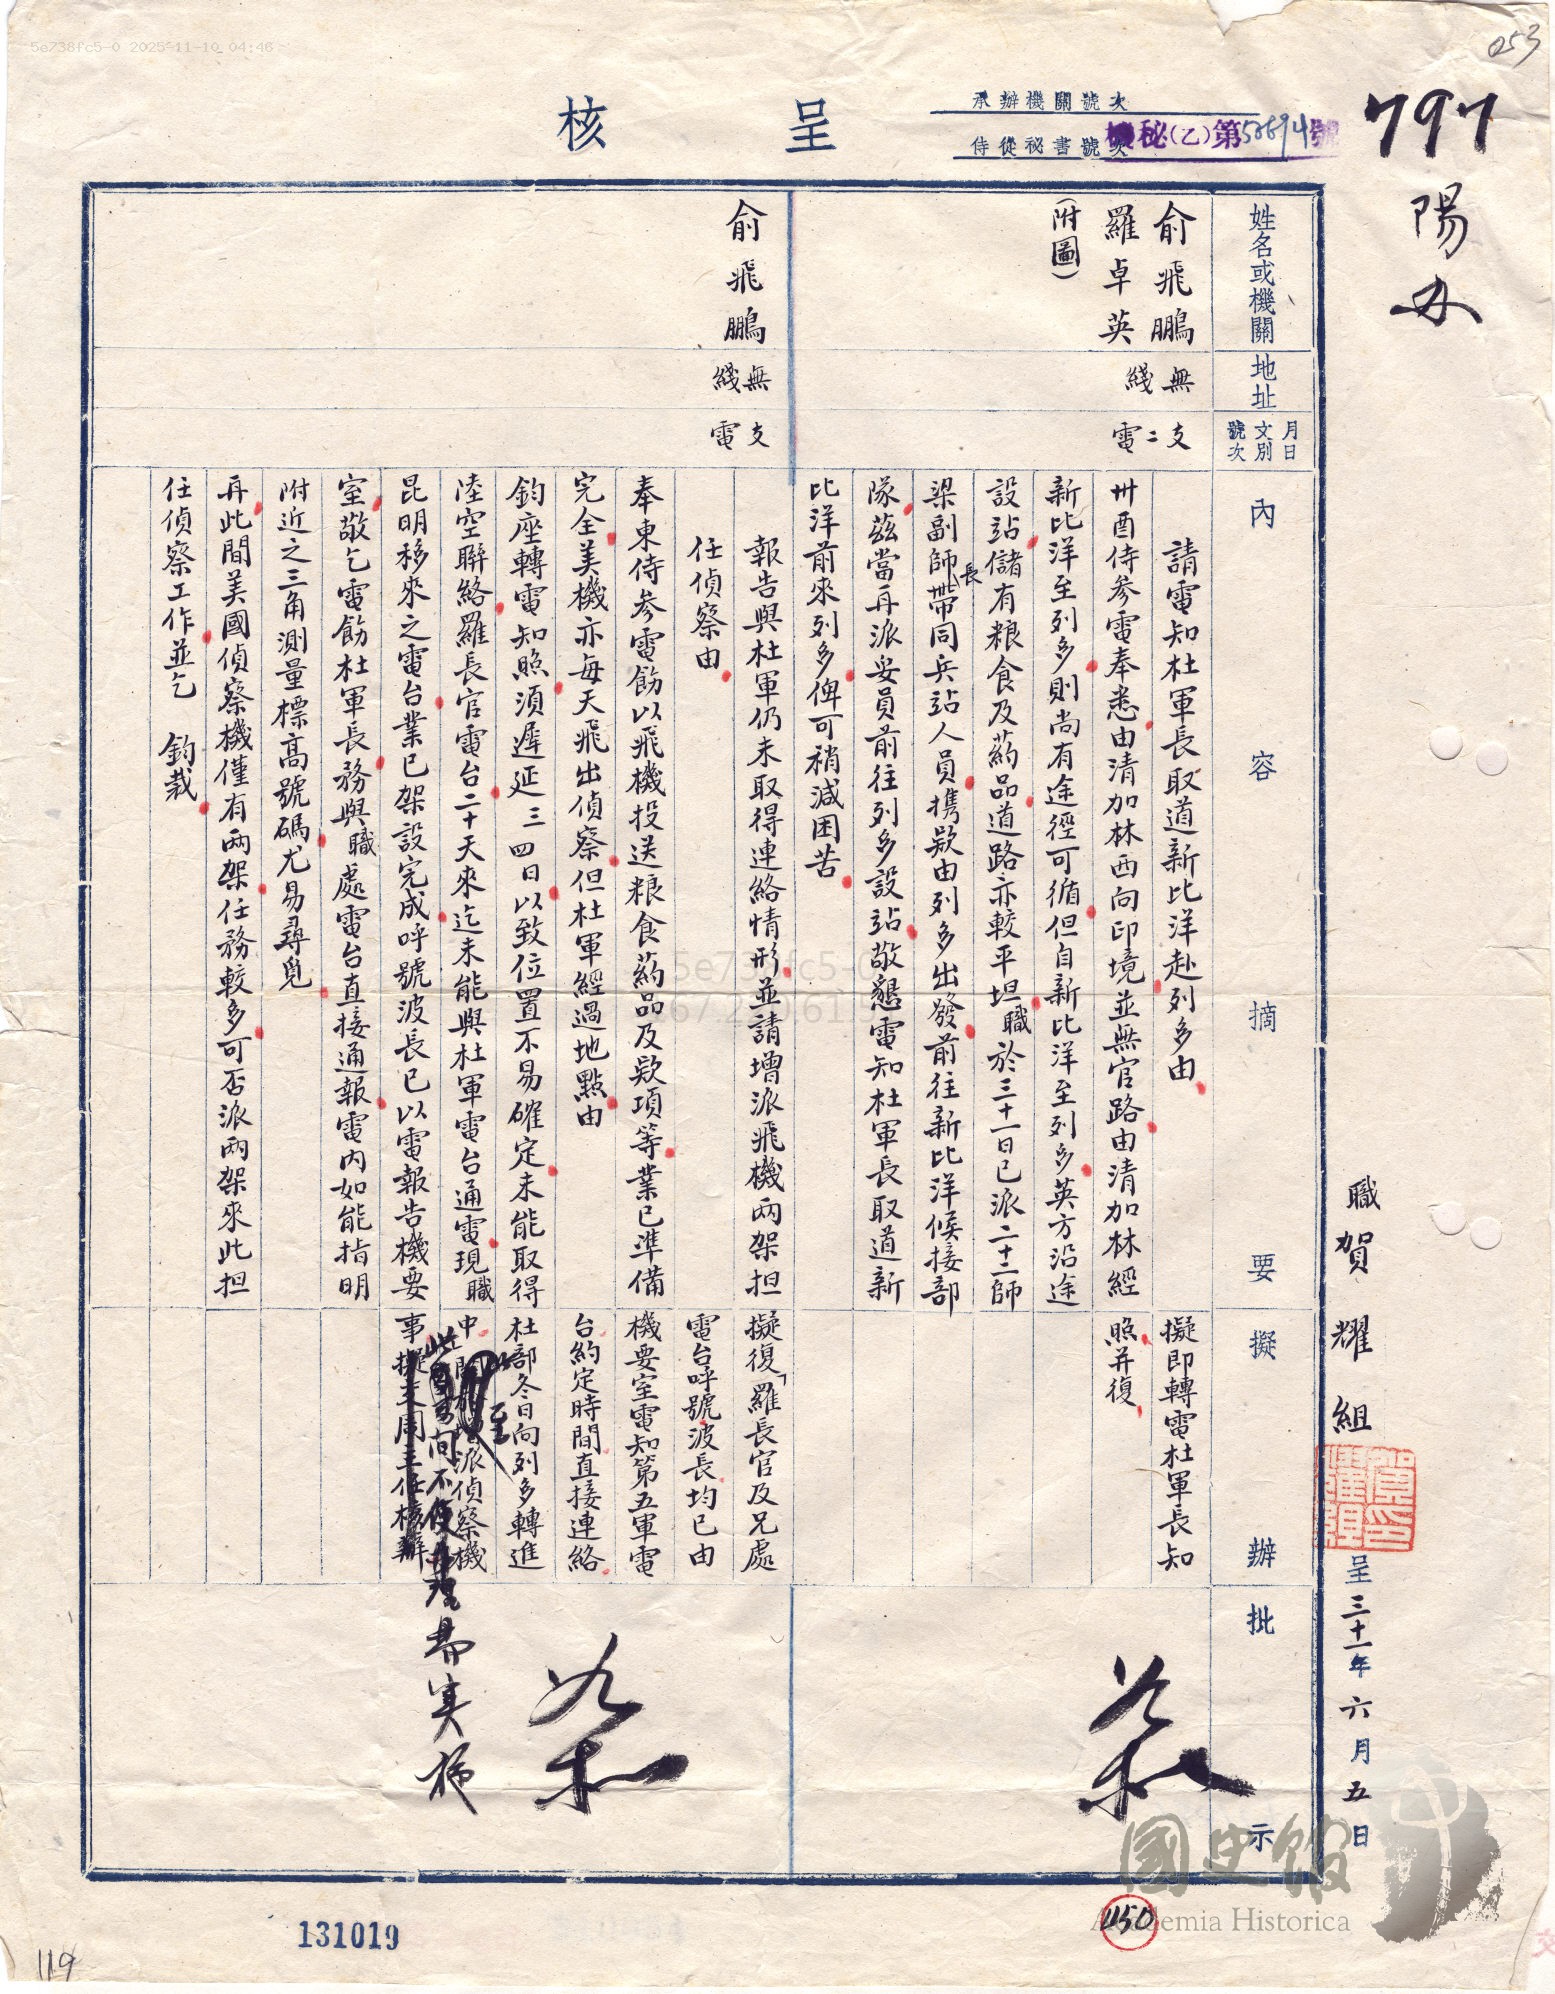 5e738fc5-0 2025-11-10 04:46
053
797
陽办
呈核
承辦機關號次
侍從秘書號次
機秘(乙)第52694號
姓名或機關
地址
月日文別號次
內容摘要
擬辦
批示
職賀耀組呈三十一年六月五日
俞飛鵬
羅卓英
(附圖)
無綫
支二電
請電知杜軍長取道新比洋赴列多由
卅酉侍参電奉悉由清加林西向印境並無官路由清加林經
新比洋至列多則尚有途徑可循但自新比洋至列多英方沿途
設站儲有粮食及葯品道路亦較平坦職於三十一日已派二十二師
梁副師長帶同兵站人員携欵由列多出發前往新比洋候接部
隊茲當再派妥員前往列多設站敬懇電知杜軍長取道新
比洋前來列多俾可稍減困苦
擬即轉電杜軍長知
照并復
俞飛鵬
無綫
支電
報告與杜軍仍未取得連絡情形並請增派飛機両架担
任偵察由
奉東侍参電飭以飛機投送粮食葯品及欵項等業已準備
完全美機亦每天飛出偵察但杜軍經過地點由
鈞座轉電知照須遲延三四日以致位置不易確定未能取得
陸空聯絡羅長官電台二十天來迄未能與杜軍電台通電現職
昆明移來之電台業已架設完成呼號波長已以電報告機要
室敬乞電飭杜軍長務與職處電台直接通報電內如能指明
附近之三角測量標高號碼尤易尋覓
再此間美國偵察機僅有両架任務較多可否派両架來此担
任偵察工作並乞 鈞裁
擬復「羅長官及兄處
電台呼號波長均已由
機要室電知第五軍電
台約定時間直接連絡
杜部冬日向列多轉進
中至派偵察機
事擬交周主任核辦
實施
131019
119
450
國史館
Academia Historica